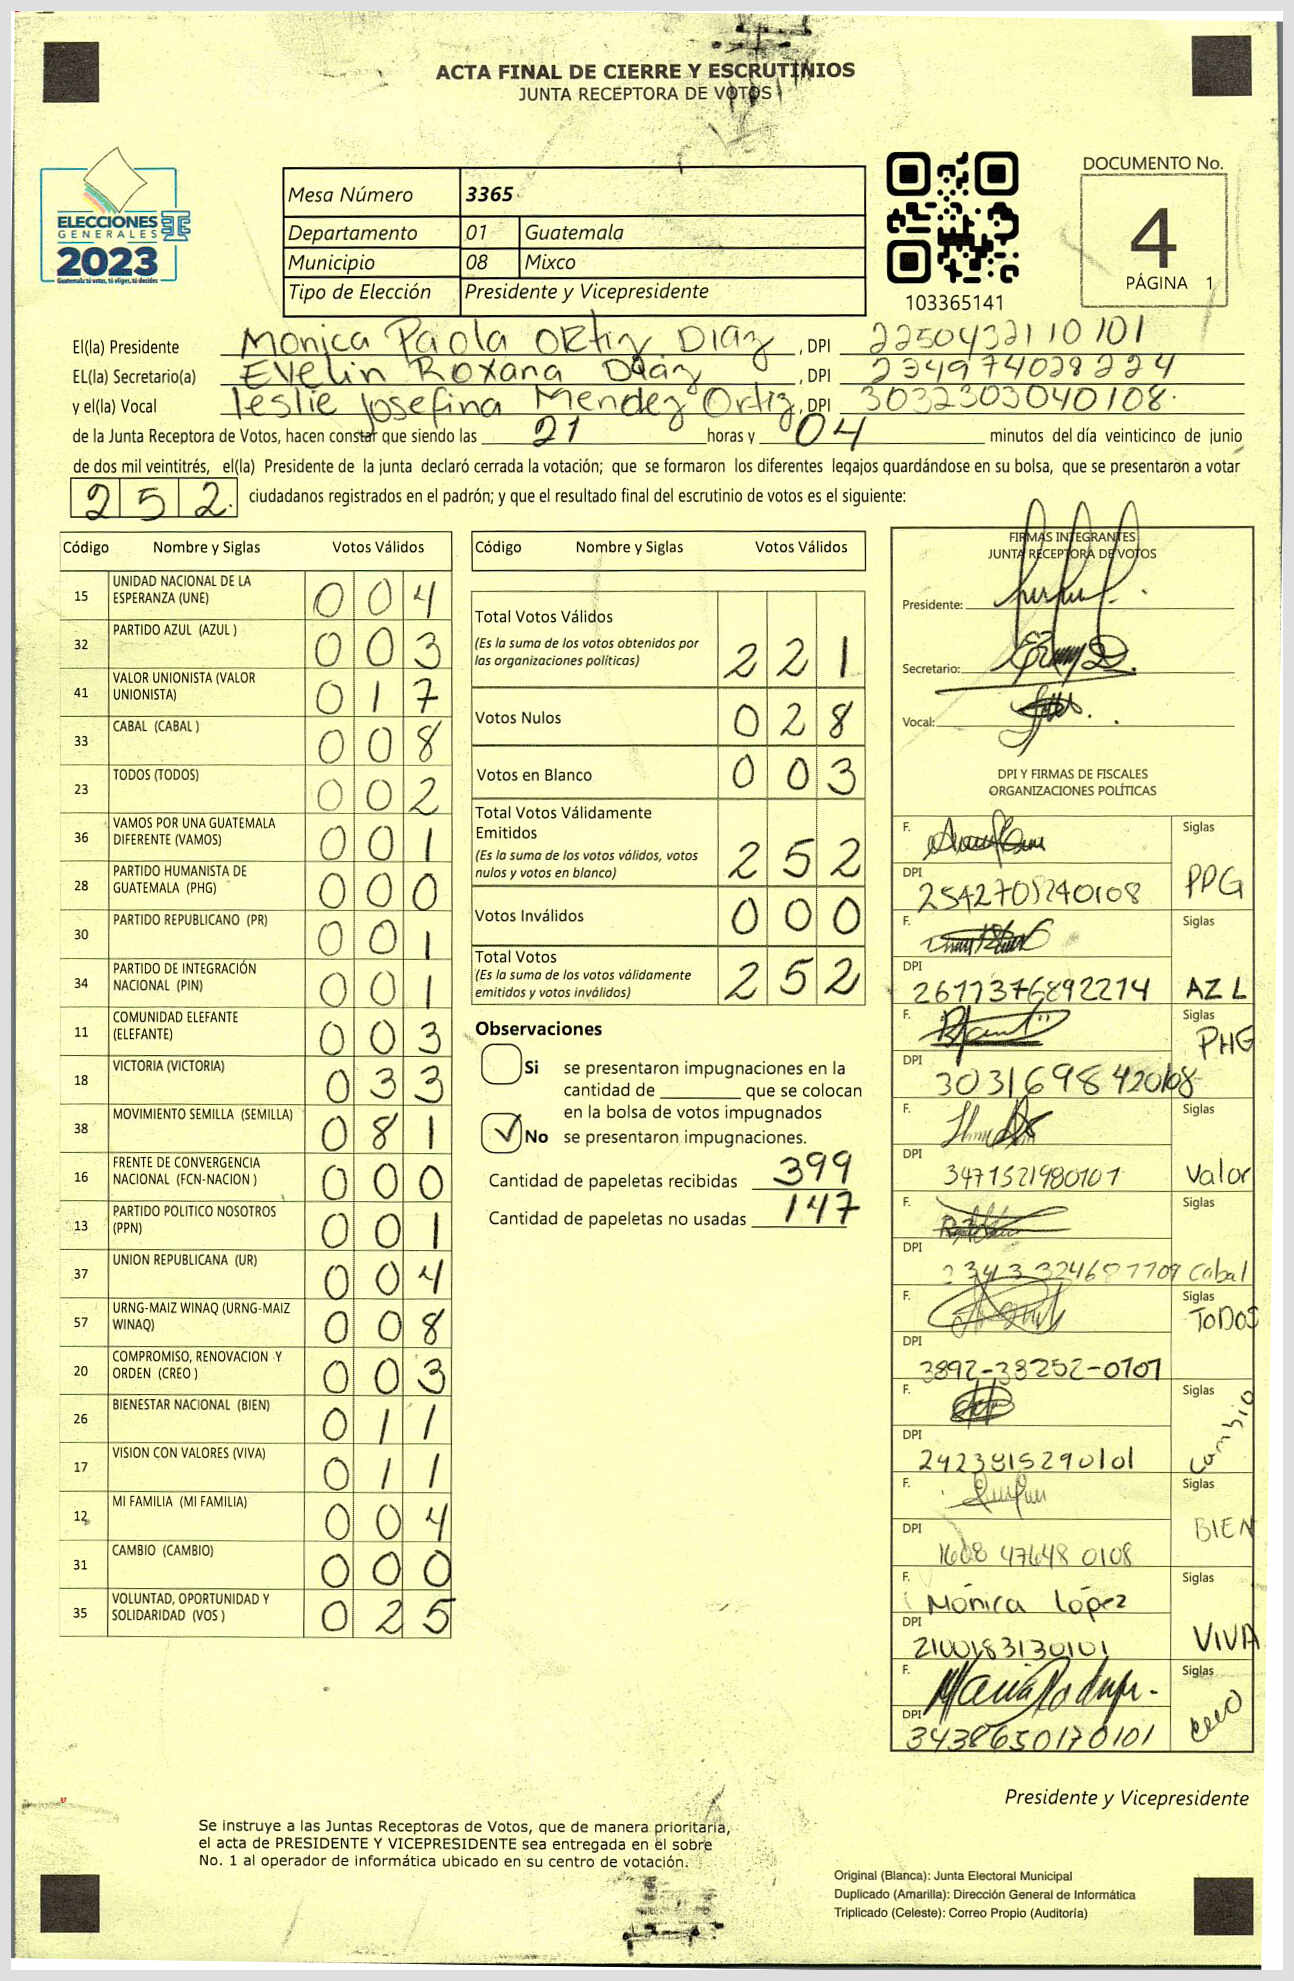 ACTA FINAL DE CIERRE Y ESCRUTINIOS
JUNTA RECEPTORA DE VOTOS
ELECCIONES
GENERALES
2023
Guatemala tú votas, tú eliges, tú decides
Mesa Número 3365
Departamento 01 Guatemala
Municipio 08 Mixco
Tipo de Elección Presidente y Vicepresidente
103365141
DOCUMENTO No.
4
PÁGINA 1
El(la) Presidente Monica Paola Ortiz Diaz, DPI 2250432110101
EL(la) Secretario(a) Evelin Roxana Diaz, DPI 2349740282224
y el(la) Vocal Leslie Josefina Mendez Ortiz, DPI 3032303040108
de la Junta Receptora de Votos, hacen constar que siendo las 21 horas y 04 minutos del día veinticinco de junio
de dos mil veintitrés, el(la) Presidente de la junta declaró cerrada la votación; que se formaron los diferentes legajos guardándose en su bolsa, que se presentaron a votar
252 ciudadanos registrados en el padrón; y que el resultado final del escrutinio de votos es el siguiente:
Código Nombre y Siglas Votos Válidos
15 UNIDAD NACIONAL DE LA ESPERANZA (UNE) 004
32 PARTIDO AZUL (AZUL ) 003
41 VALOR UNIONISTA (VALOR UNIONISTA) 017
33 CABAL (CABAL ) 008
23 TODOS (TODOS) 002
36 VAMOS POR UNA GUATEMALA DIFERENTE (VAMOS) 001
28 PARTIDO HUMANISTA DE GUATEMALA (PHG) 000
30 PARTIDO REPUBLICANO (PR) 001
34 PARTIDO DE INTEGRACIÓN NACIONAL (PIN) 001
11 COMUNIDAD ELEFANTE (ELEFANTE) 003
18 VICTORIA (VICTORIA) 033
38 MOVIMIENTO SEMILLA (SEMILLA) 081
16 FRENTE DE CONVERGENCIA NACIONAL (FCN-NACION ) 000
13 PARTIDO POLITICO NOSOTROS (PPN) 001
37 UNION REPUBLICANA (UR) 004
57 URNG-MAIZ WINAQ (URNG-MAIZ WINAQ) 008
20 COMPROMISO, RENOVACION Y ORDEN (CREO ) 003
26 BIENESTAR NACIONAL (BIEN) 011
17 VISION CON VALORES (VIVA) 011
12 MI FAMILIA (MI FAMILIA) 004
31 CAMBIO (CAMBIO) 000
35 VOLUNTAD, OPORTUNIDAD Y SOLIDARIDAD (VOS ) 025
Código Nombre y Siglas Votos Válidos
Total Votos Válidos 221
(Es la suma de los votos obtenidos por
las organizaciones políticas)
Votos Nulos 028
Votos en Blanco 003
Total Votos Válidamente
Emitidos 252
(Es la suma de los votos válidos, votos
nulos y votos en blanco)
Votos Inválidos 000
Total Votos 252
(Es la suma de los votos válidamente
emitidos y votos inválidos)
Observaciones
Si se presentaron impugnaciones en la
cantidad de ________ que se colocan
en la bolsa de votos impugnados
No se presentaron impugnaciones.
Cantidad de papeletas recibidas 399
Cantidad de papeletas no usadas 147
FIRMAS INTEGRANTES
JUNTA RECEPTORA DE VOTOS
Presidente:
Secretario:
Vocal:
DPI Y FIRMAS DE FISCALES
ORGANIZACIONES POLÍTICAS
F. Siglas
DPI PPG
F. Siglas
DPI 2677376892214 AZL
F. Siglas
DPI 3031698420108 PHG
F. Siglas
DPI 3471521980101 Valor
F. Siglas
DPI Cabal
F. Siglas
DPI 3892-38252-0101 TODOS
F. Siglas
DPI 2423815290101 Cambio
F. Siglas
DPI 1608 47648 0108 BIEN
F. Mónica López Siglas
DPI 2100183130101 VIVA
F. Siglas
DPI 3438650170101 creo
Presidente y Vicepresidente
Se instruye a las Juntas Receptoras de Votos, que de manera prioritaria,
el acta de PRESIDENTE Y VICEPRESIDENTE sea entregada en el sobre
No. 1 al operador de informática ubicado en su centro de votación.
Original (Blanca): Junta Electoral Municipal
Duplicado (Amarilla): Dirección General de Informática
Triplicado (Celeste): Correo Propio (Auditoría)